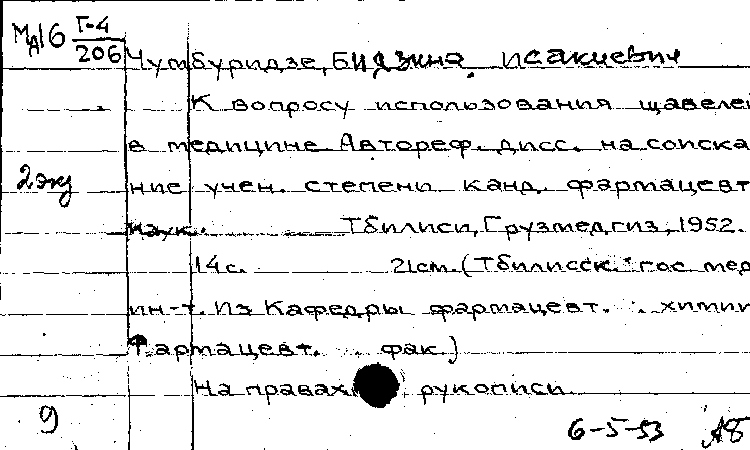 МА16 Г-4
206
Чумбуридзе, Бидзина Исакиевич
К вопросу использования щавеле
в медицине. Автореф. дисс. на соиска
ние учен. степени канд. фармацевт
наук. Тбилиси, Грузмедгиз, 1952.
2 экз
14 с. 21см. (Тбилисск. гос. мед
ин-т. Из Кафедры фармацевт. химии
Фармацевт. фак.)
На правах рукописи
9
6-5-53